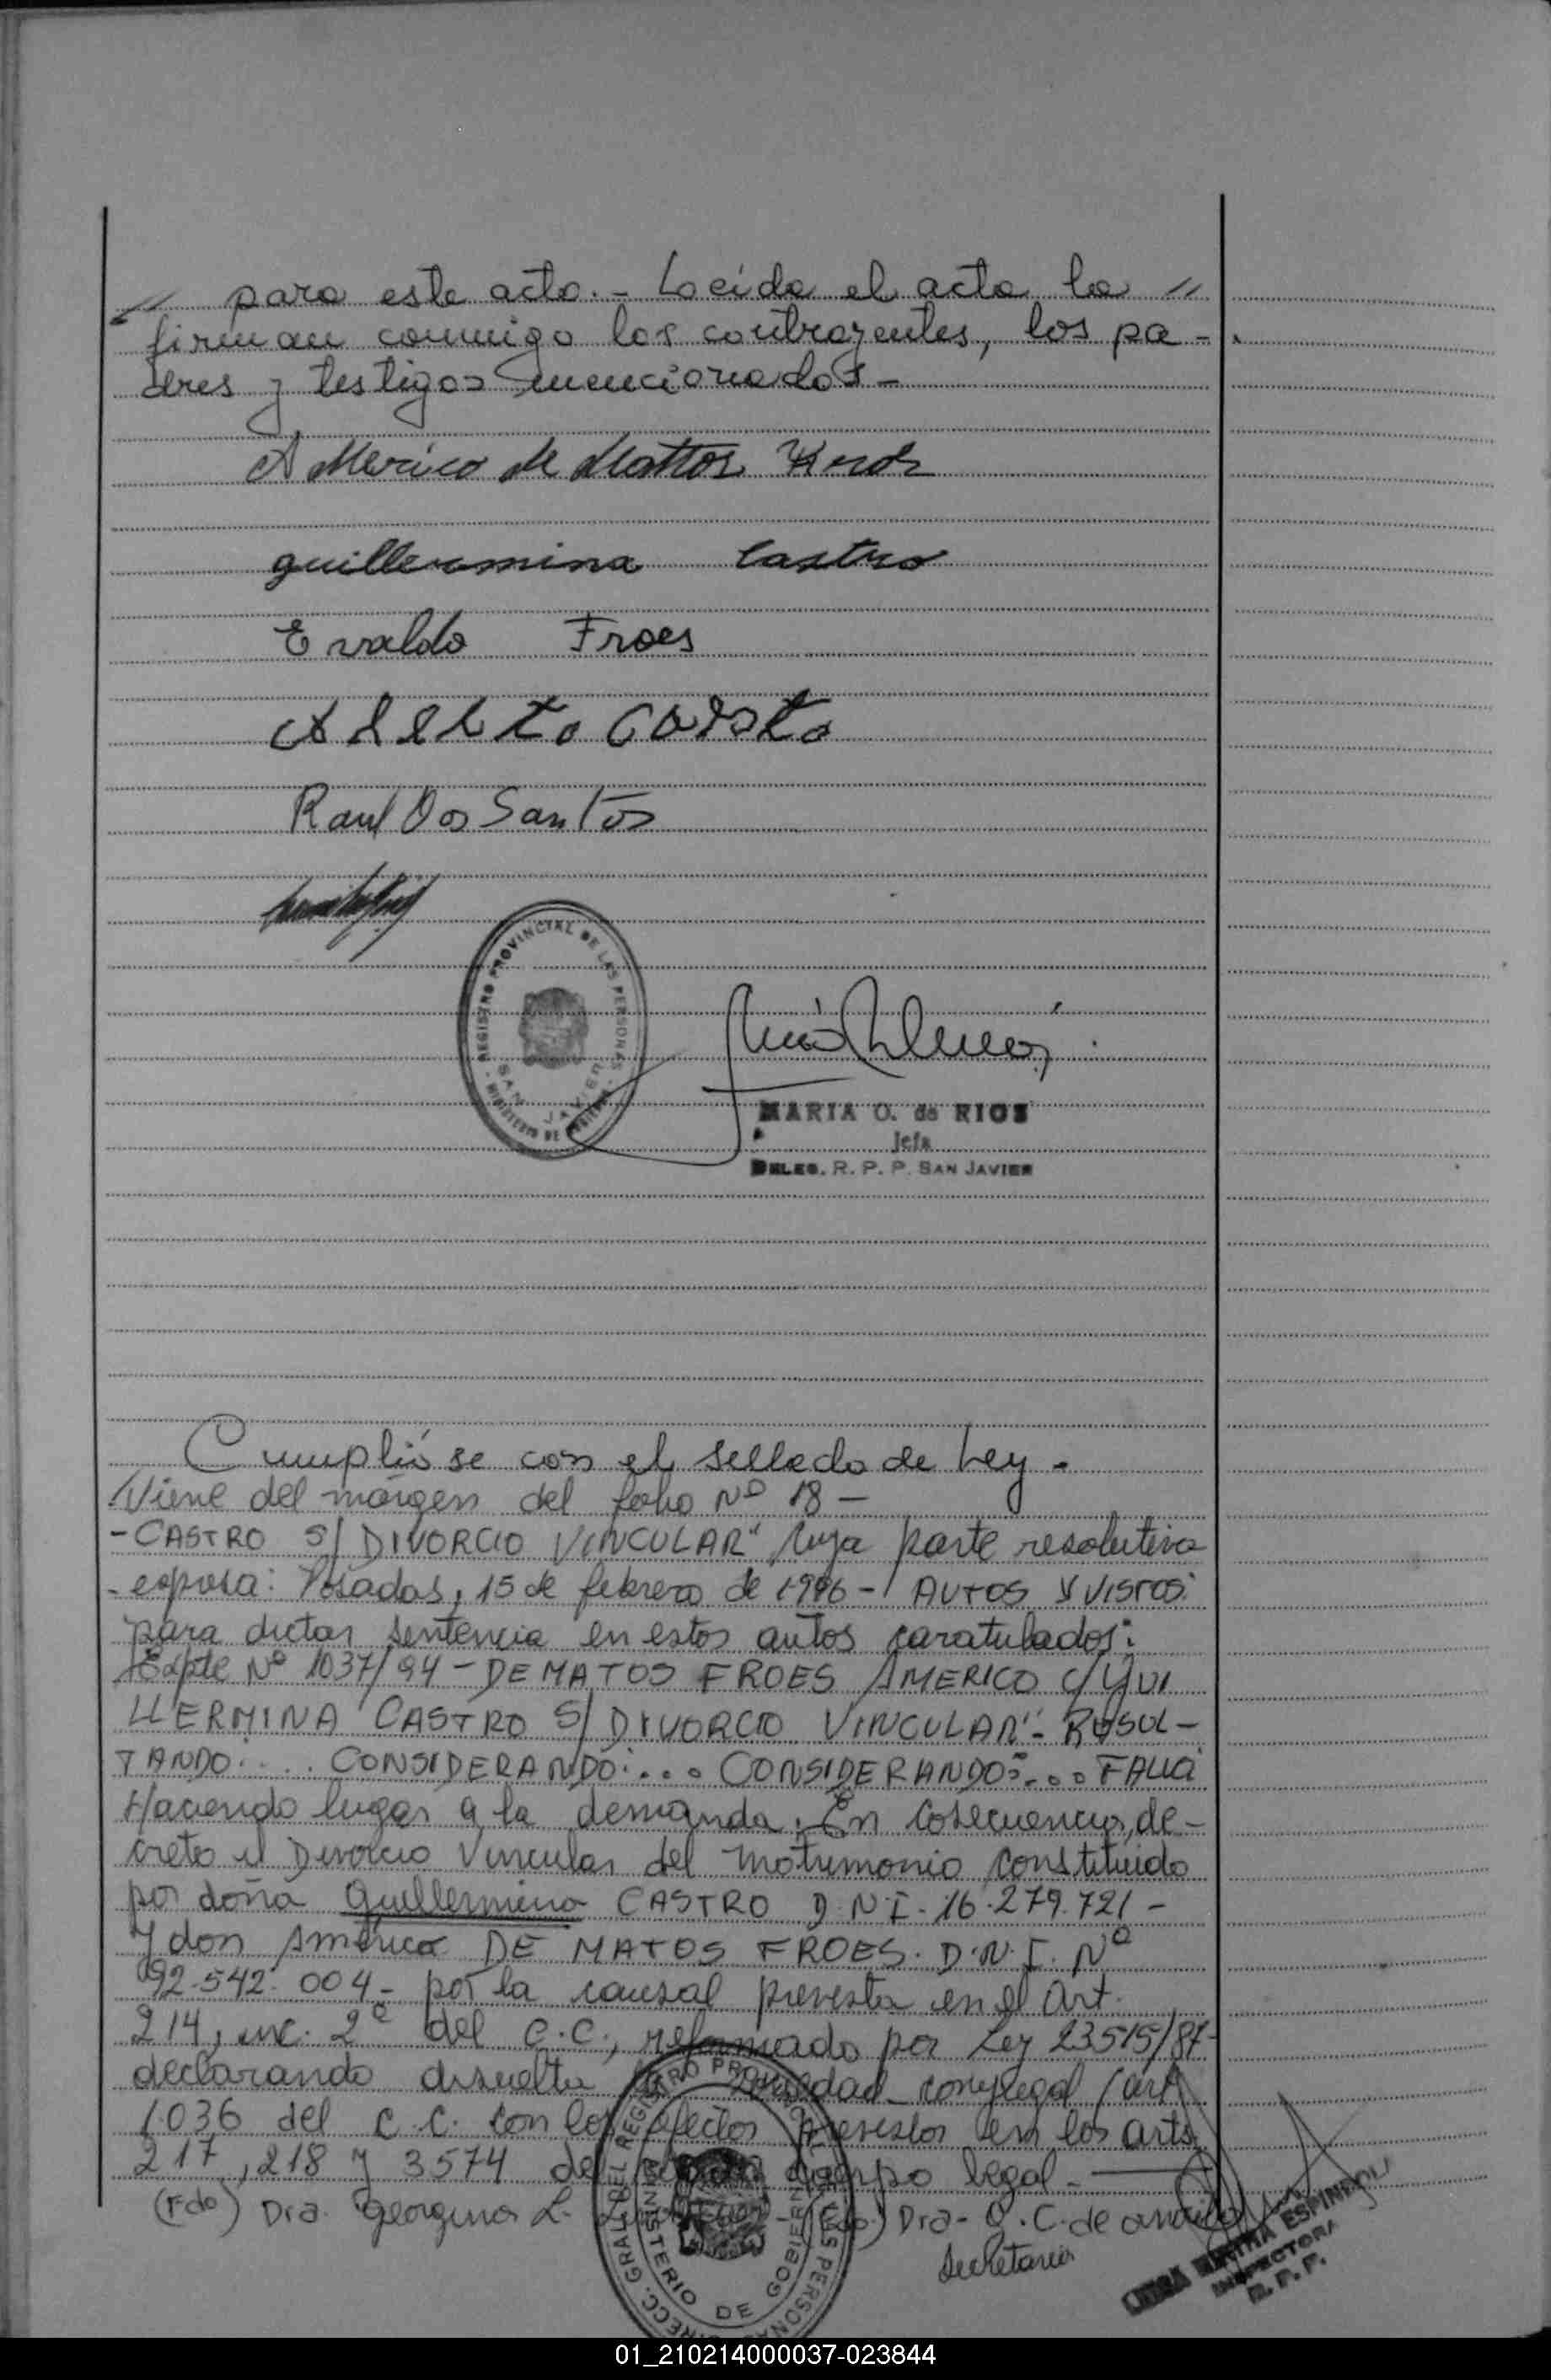 // para este acto.- Leída el acta la //
firman conmigo los contrayentes, los pa-
dres y testigos mencionados-
Americo de Mattos
guillermina Castro
Evaldo Froes
Raul Dos Santos
REGISTRO PROVINCIAL DE LAS PERSONAS
SAN JAVIER
MARIA O. de RIOS
Jefa
DELEG. R. P. P. SAN JAVIER
Cumplióse con el sellado de Ley.
Viene del márgen del folio Nº 18-
-CASTRO S/ DIVORCIO VINCULAR" cuya parte resolutiva
expresa: Posadas, 15 de febrero de 1996- AUTOS Y VISTOS:
para dictar sentencia en estos autos caratulados:
"Expte Nº 1037/94 - DE MATOS FROES AMERICO C/ GUI
LLERMINA CASTRO S/ DIVORCIO VINCULAR"- RESUL-
TANDO:.... CONSIDERANDO:... CONSIDERANDO:... FALLO
Haciendo lugar a la demanda. En cosecuencia, de-
creto el Divorcio Vincular del matrimonio constituido
por doña Guillermina CASTRO D.N.I. 16.279.721 -
Y don Américo DE MATOS FROES. D.N.I. Nº
92.542.004- por la causal prevista en el Art.
214, inc. 2º del C.C., reformado por Ley 23515/87-
declarando disuelta la sociedad conyugal (art
1.036 del C.C. con los efectos previstos en los arts
217, 218 y 3574 del cuerpo legal.-
(Fdo) Dra. Georgina L. - (Fdo.) Dra- O.C. de
Secretaria
DIRECC. GRAL. DEL REGISTRO PROVINCIAL DE LAS PERSONAS
MINISTERIO DE GOBIERNO
ESPINDOLA
INSPECTORA
R. P. P.
01_210214000037-023844